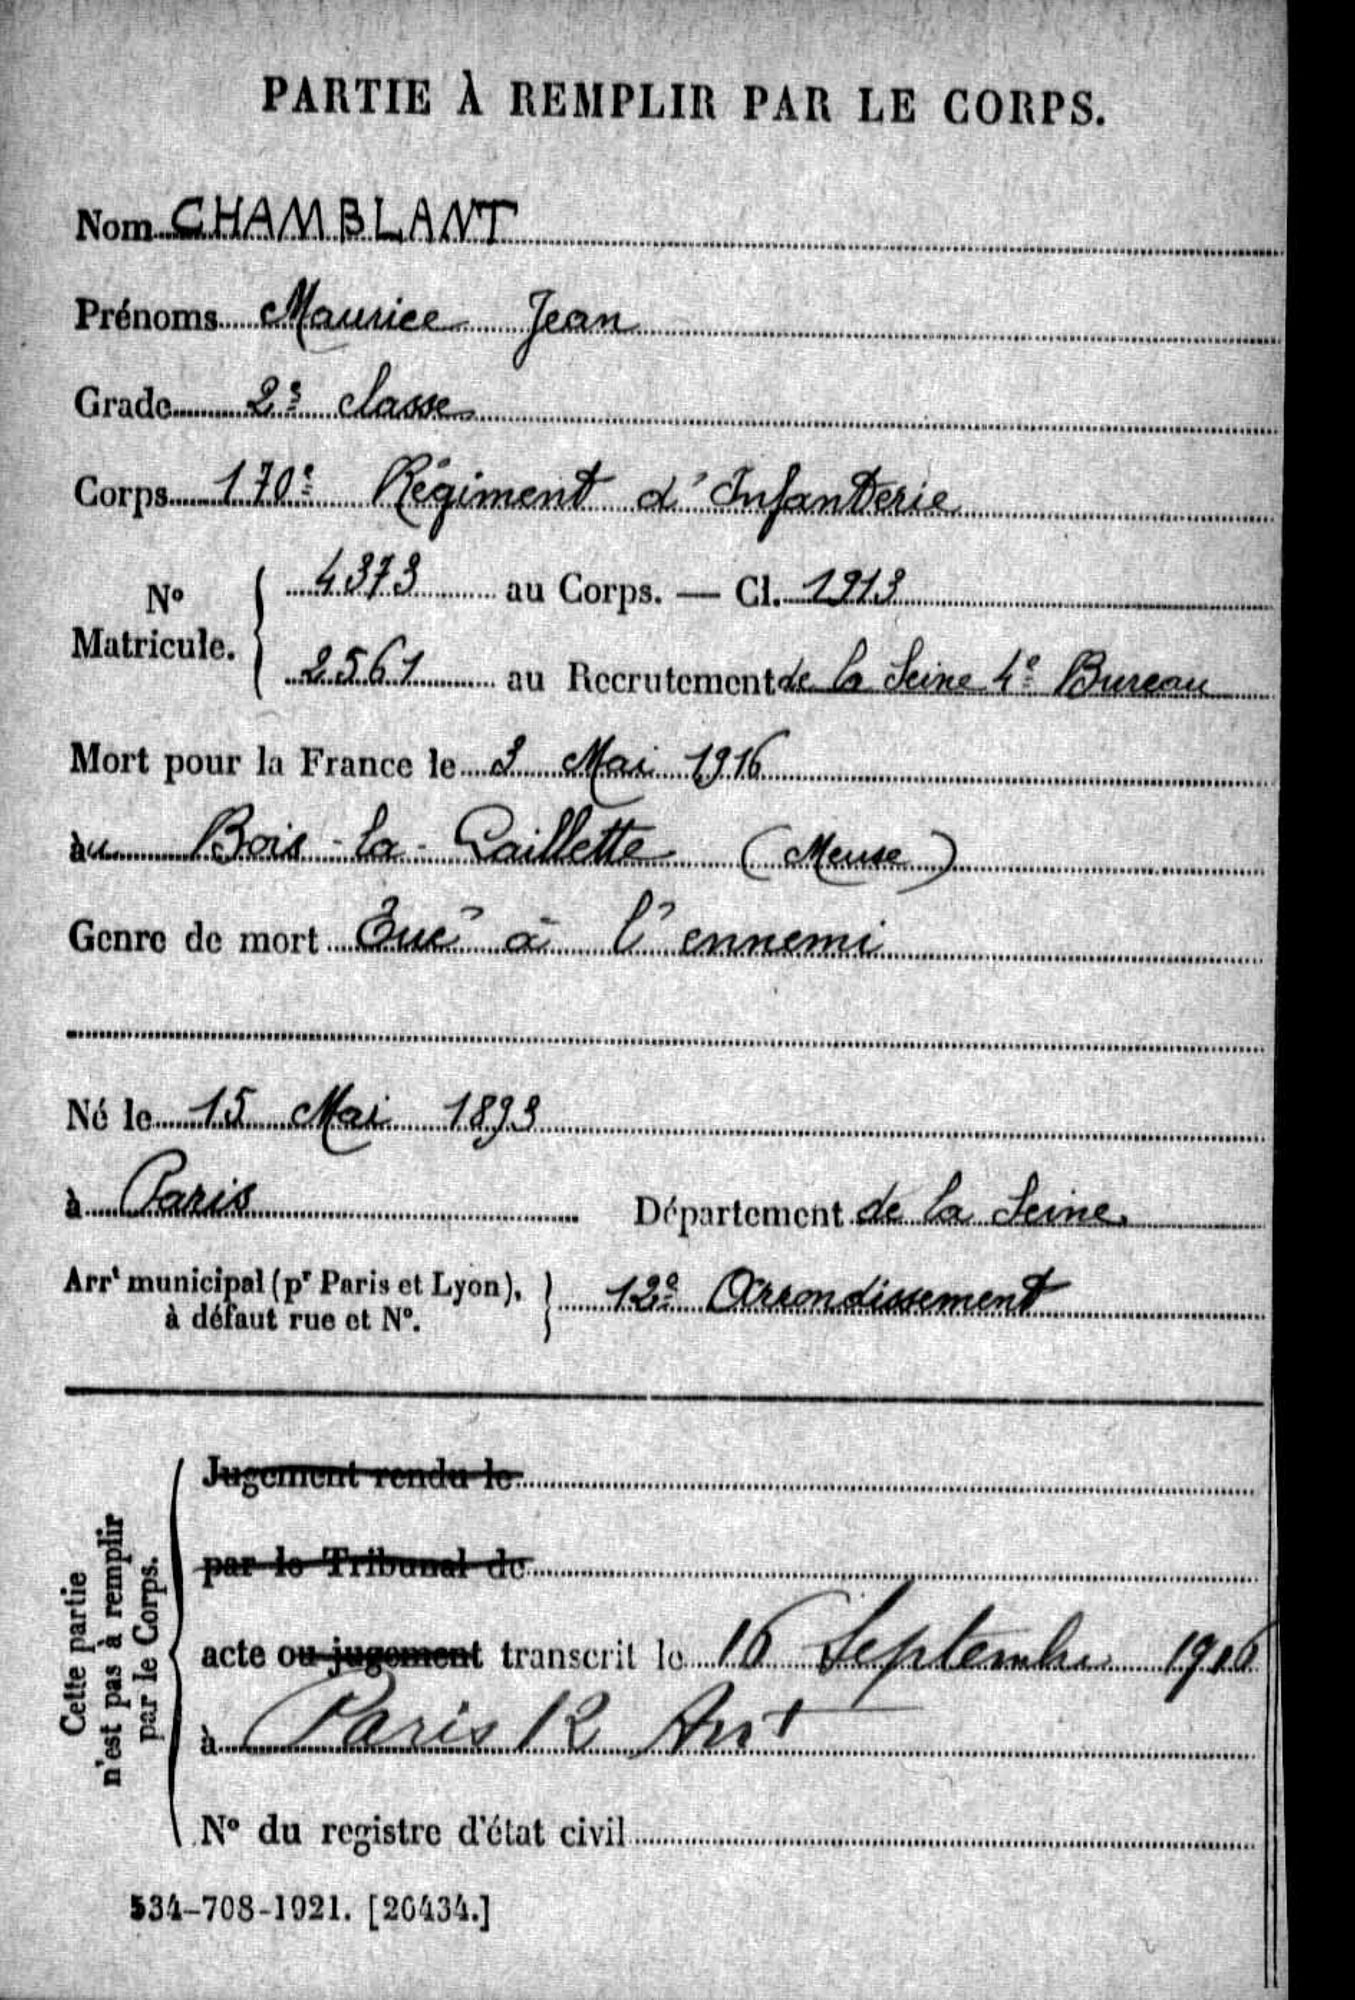 PARTIE À REMPLIR PAR LE CORPS.
Nom CHAMBLANT
Prénoms Maurice Jean
Grade 2e classe
Corps 170e Régiment d'Infanterie
No Matricule. 4373 au Corps. — Cl. 1913
2561 au Recrutement de la Seine 4e Bureau
Mort pour la France le 3 Mai 1916
au Bois-la-Caillette (Meuse)
Genre de mort Tué à l'ennemi
Né le 15 Mai 1893
à Paris Département de la Seine.
Arrt municipal (pr Paris et Lyon), à défaut rue et No. 12e Arrondissement
Cette partie n'est pas à remplir par le Corps.
Jugement rendu le
par le Tribunal de
acte ou jugement transcrit le 16 Septembre 1916
à Paris 12 Arrt
No du registre d'état civil
534-708-1921. [26434.]